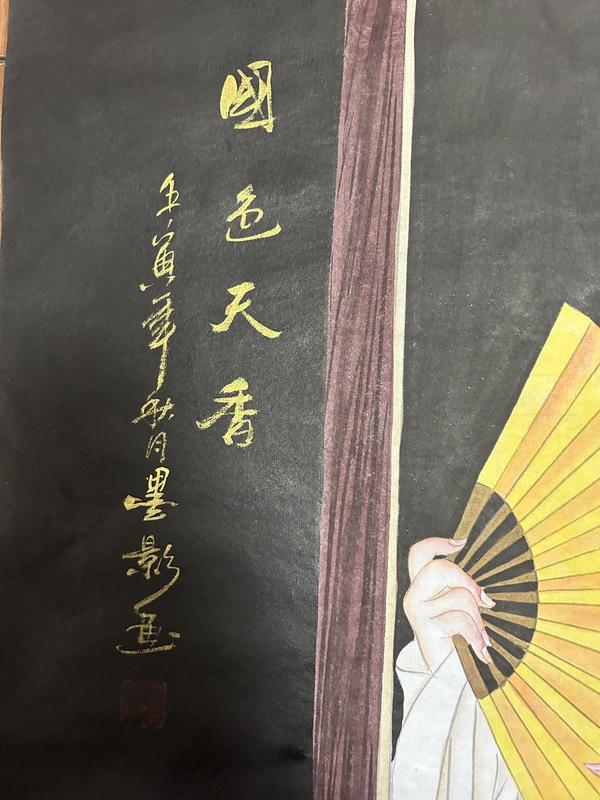 國色天香
壬寅年秋月墨影画